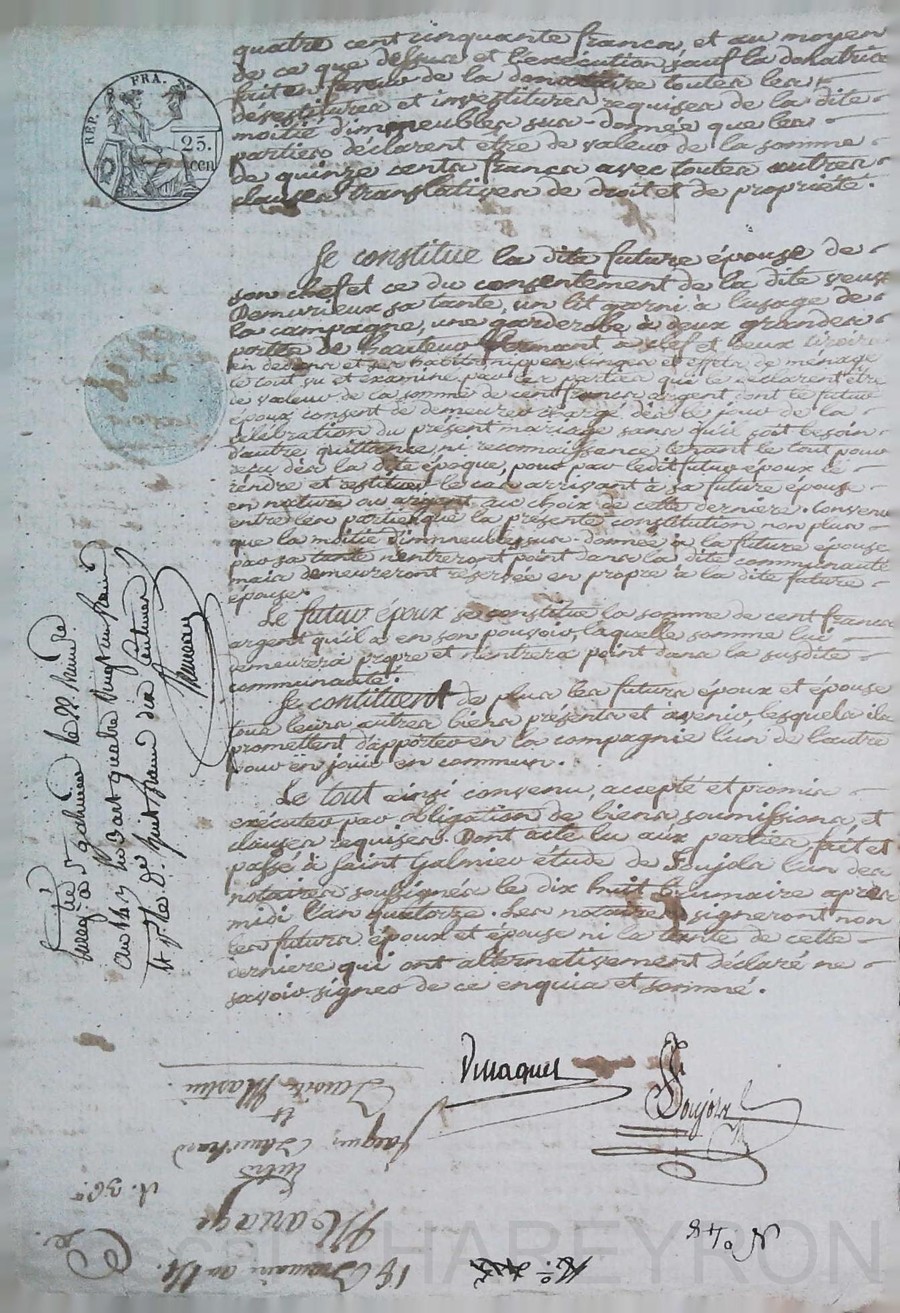 REP. FRA.
25.
cen
quatre cent cinquante francs, et au moyen
de ce que dessus et l'exécution sauf la donatrice
fait en faveur de la donataire toutes les
devestitures et investitures requises de la dite
moitié d'immeubles sus-donnée que les
parties déclarent etre de valeur de la somme
de quinze cents francs avec toutes autres
clauses translatives de droit et de propriété.
Se constitue la dite future épouse de
son chef et ce du consentement de la dite veuve
Demurieux sa tante, un lit garni à l'usage de
la campagne, une garderobe à deux grandes
portes de hauteur fermant à clef et deux tiroirs
en dedans et ses habits nippes linges et effets de ménage
le tout vu et examiné par les parties qui le déclarent être
de valeur de la somme de cent francs argent dont le futur
époux consent de demeurer chargé dès le jour de la
célébration du présent mariage sans qu'il soit besoin
d'autre quittance, ni reconnaissance tenant le tout pour
reçu dès la dite époque, pour par ledit futur époux le
rendre et restituer le cas arrivant à sa future épouse
en nature ou argent au choix de cette dernière. Convenu
entre les parties que la présente constitution non plus
que la moitié d'immeubles sus-donnée à la future épouse
par sa tante n'entreront point dans la dite communauté
mais demeureront réservée en propre à la dite future
épouse.
Le futur époux se constitue la somme de cent francs
argent qu'il a en son pouvoir, laquelle somme lui
demeurera propre et n'entrera point dans la susdite
communauté.
Se constituent de plus les futurs époux et épouse
tous leurs autres biens présents et à venir, lesquels ils
promettent d'apporter en la compagnie l'un de l'autre
pour en jouir en commun.
Le tout ainsi convenu, accepté et promis
exécuter par obligation de biens soumissions, et
clauses requises. Dont acte lu aux parties fait et
passé à Saint Galmier étude de Soujols l'un des
notaires soussignés le dix huit brumaire après
midi l'an quatorze. Les notaires signeront non
les futurs époux et épouse ni la tante de cette
derniere qui ont alternativement déclaré ne
savoir signer de ce enquis et sommé.
Enregistré à St galmier le 22 brumaire
an 14
huit francs dix centimes
Soujols
Mariage
entre
Jacques
et
N.o 48
18 Brumaire an 14.